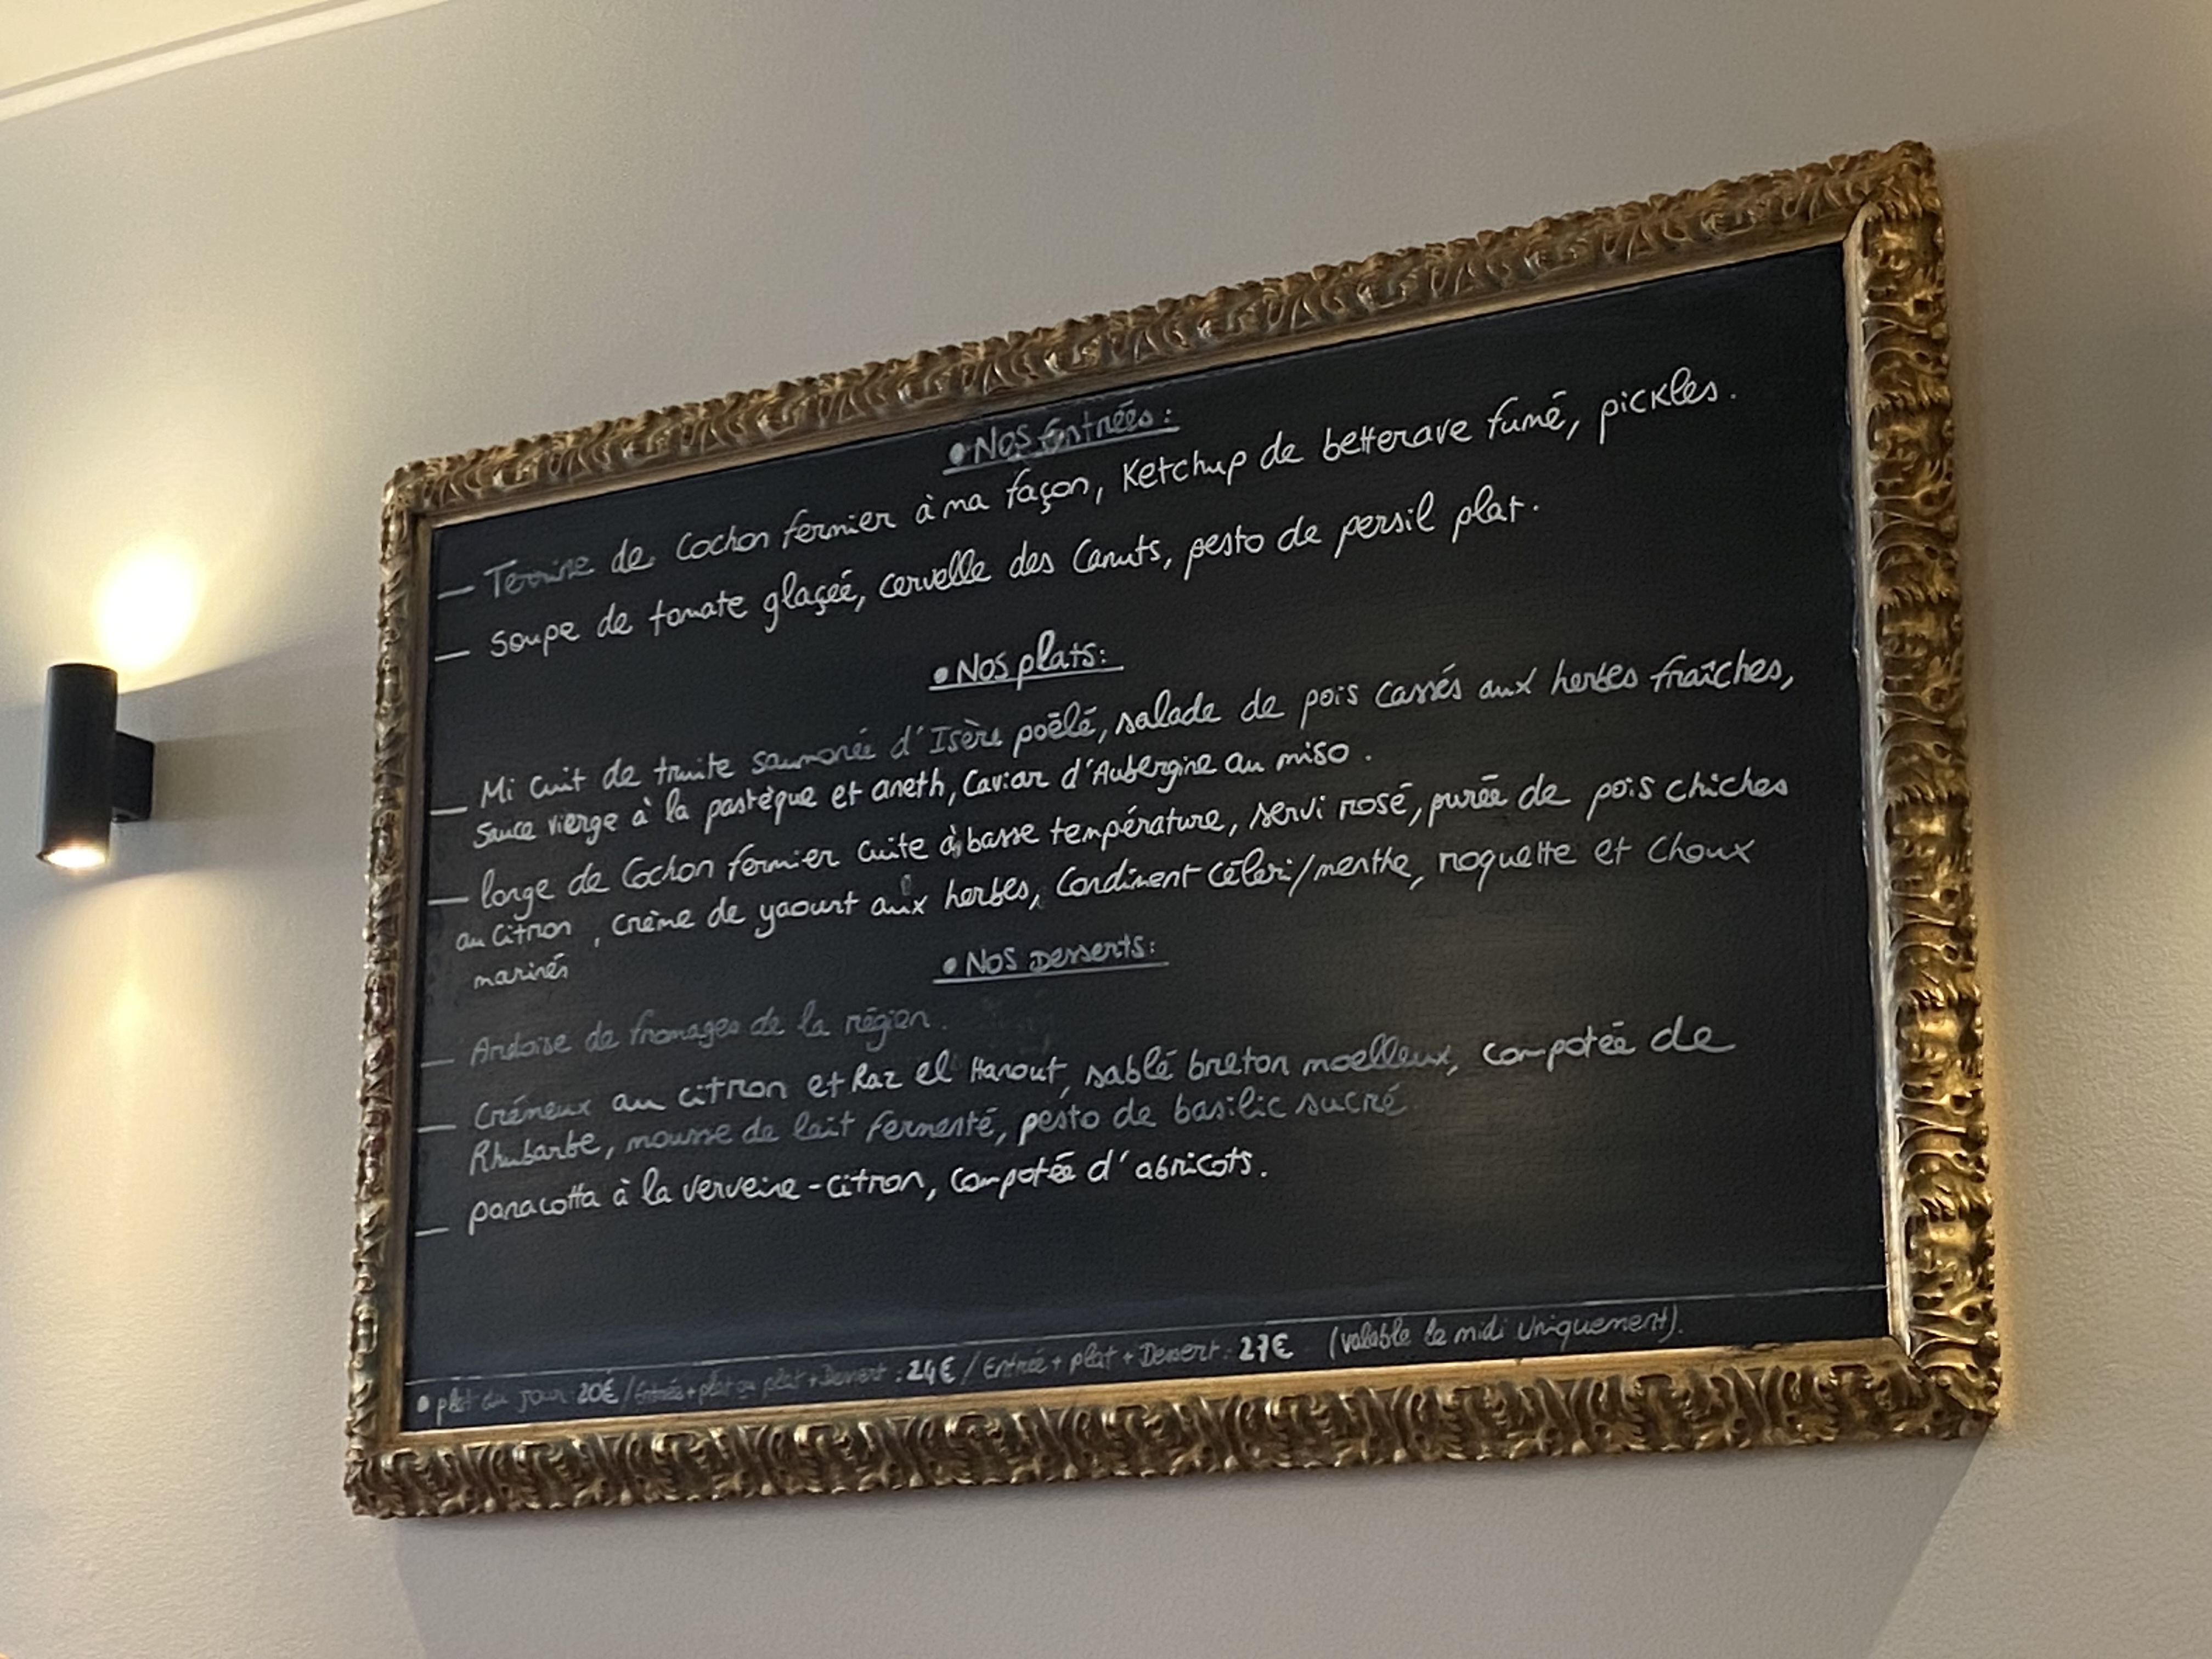 • Nos Entrées :
— Terrine de Cochon fermier à ma façon, Ketchup de betterave fumé, pickles.
— Soupe de tomate glaçéé, cervelle des Canuts, pesto de persil plat.
• Nos plats :
— Mi cuit de truite saumonée d'Isère poêlé, salade de pois cassés aux herbes fraîches,
sauce vierge à la pastèque et aneth, Caviar d'Aubergine au miso.
— longe de Cochon fermier cuite à basse température, servi rosé, purée de pois chiches
au Citron, Crème de yaourt aux herbes, Condiment Céleri/menthe, roquette et choux
marinés
• Nos Desserts :
— Ardoise de fromages de la région.
— Crémeux au citron et Raz el Hanout, sablé breton moelleux, compotée de
Rhubarbe, mousse de lait fermenté, pesto de basilic sucré
— panacotta à la verveine-citron, compotée d'abricots.
• plat du jour : 20€ / Entrée + plat ou plat + Dessert : 24€ / Entrée + plat + Dessert : 27€ (valable le midi Uniquement).